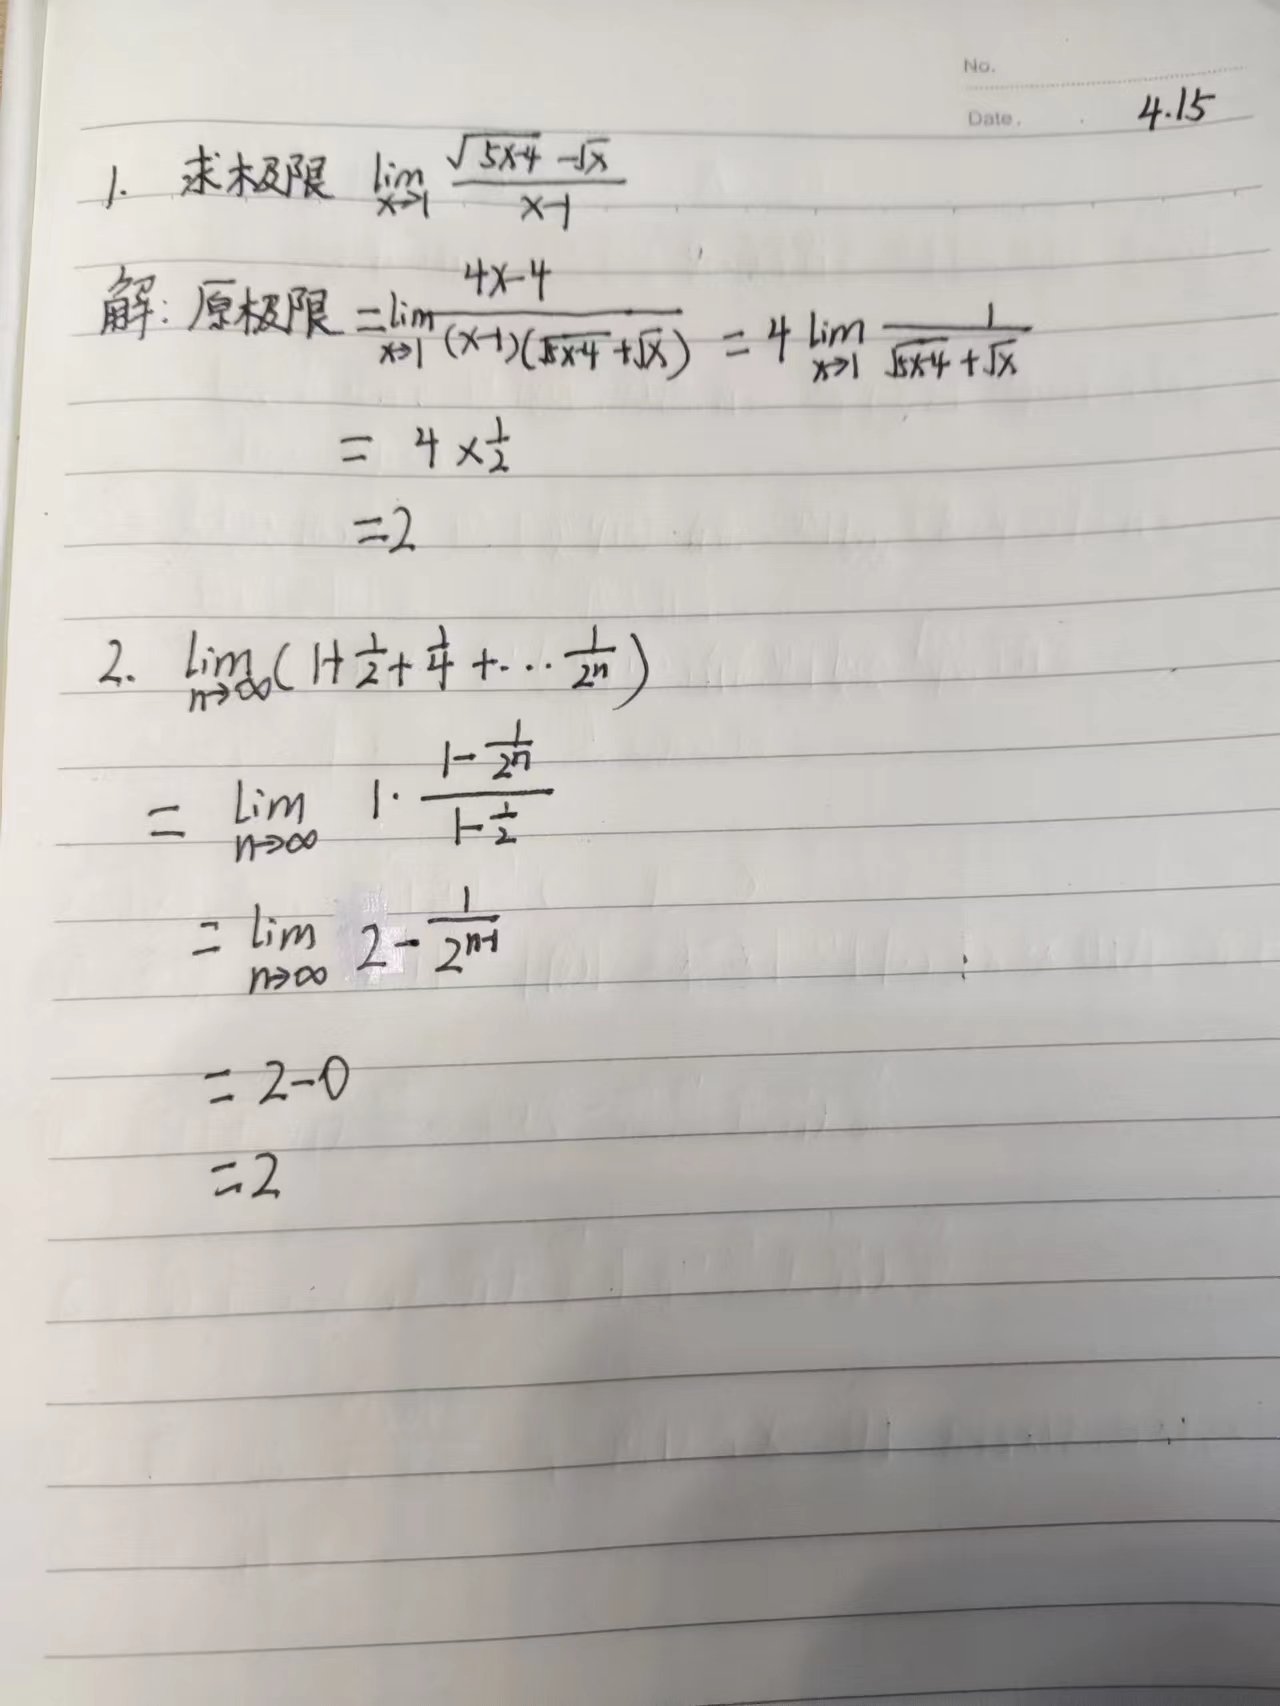 No.
Date. 4.15
1. 求极限 lim x→1 (√(5x-4) - √x)/(x-1)
解: 原极限 = lim x→1 (4x-4)/((x-1)(√(5x-4) + √x)) = 4 lim x→1 1/(√(5x-4) + √x)
= 4 × 1/2
= 2
2. lim n→∞ (1 + 1/2 + 1/4 + ... 1/2ⁿ)
= lim n→∞ 1 · (1 - 1/2ⁿ)/(1 - 1/2)
= lim n→∞ 2 - 1/2ⁿ⁻¹
= 2 - 0
= 2